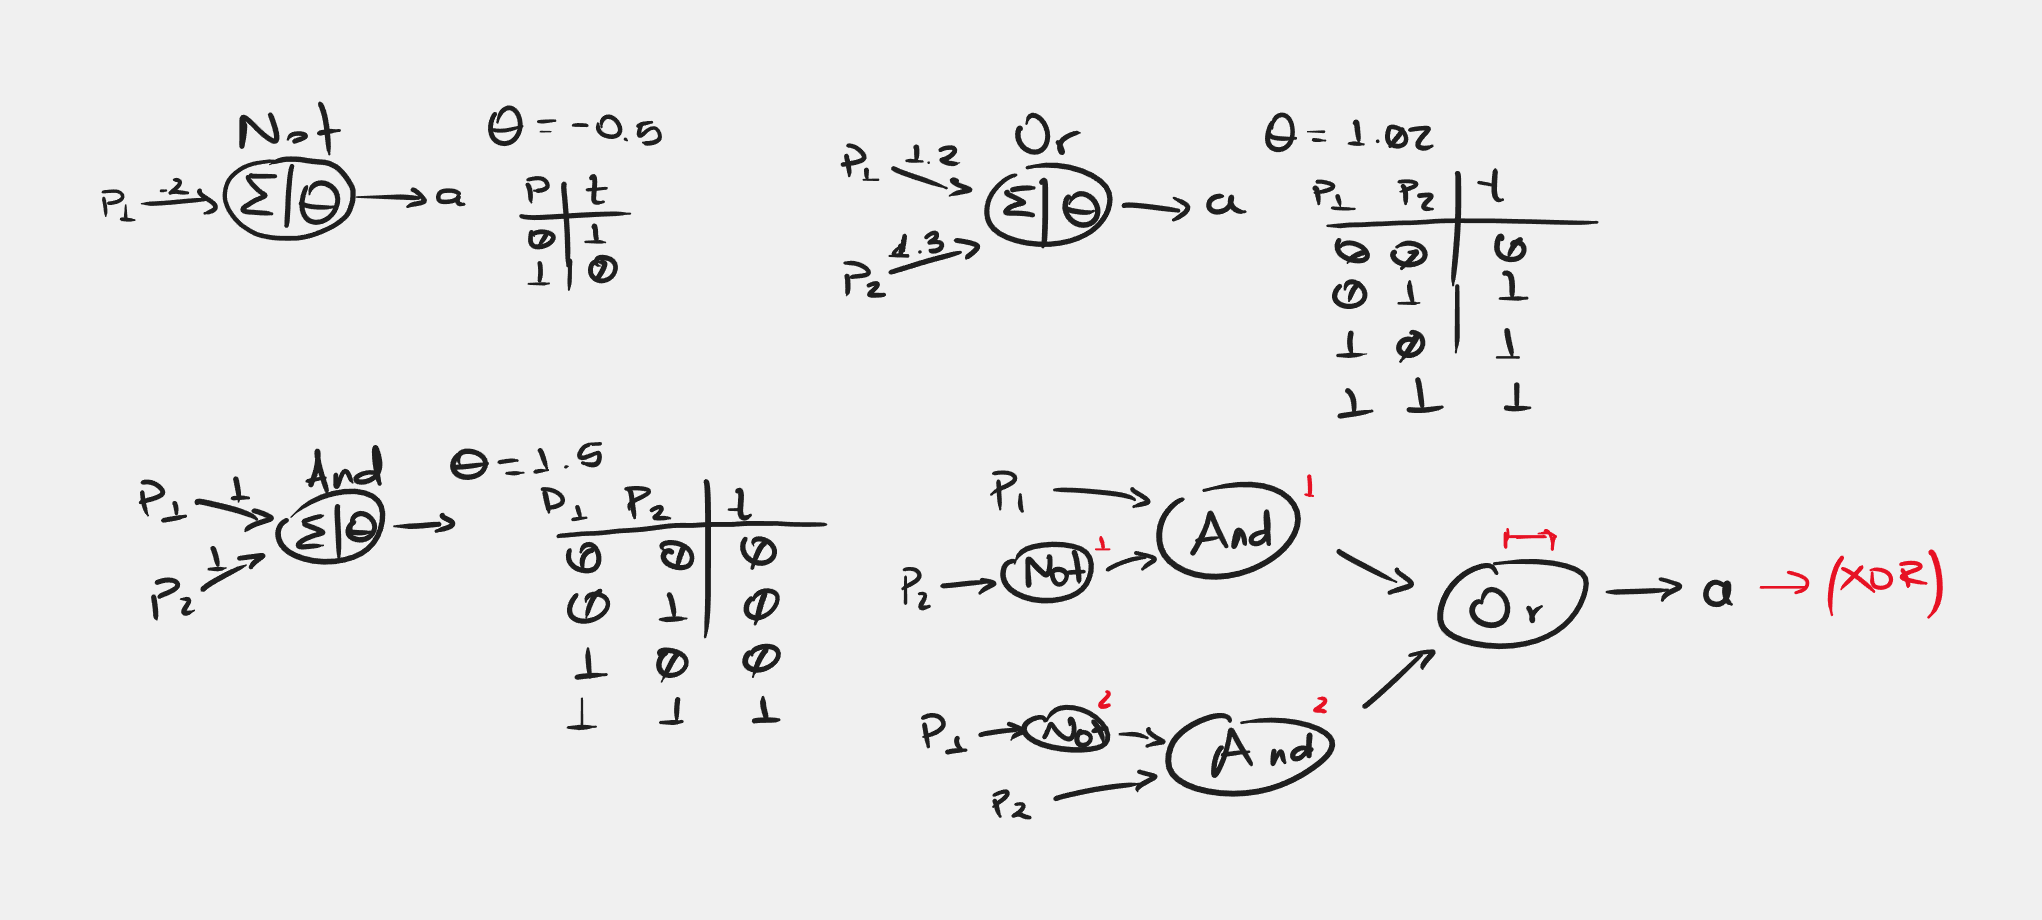 Not
θ = -0.5
P1 -2 Σ|θ a
P t
0 1
1 0
Or
θ = 1.02
P1 1.2
P2 1.3
Σ|θ a
P1 P2 t
0 0 0
0 1 1
1 0 1
1 1 1
And
θ = 1.5
P1 1
P2 1
Σ|θ
P1 P2 t
0 0 0
0 1 0
1 0 0
1 1 1
P1 And 1
P2 Not 1
Or a (XOR)
P1 Not 2 And 2
P2